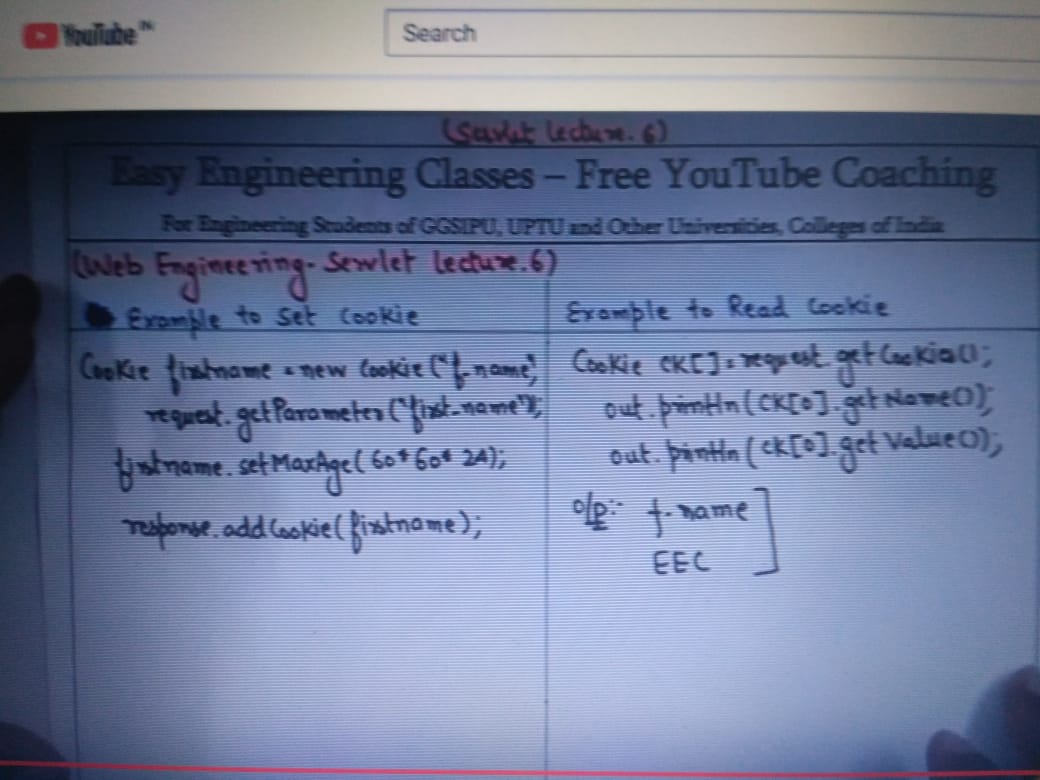 YouTube IN
Search
(Servlet lecture. 6)
Easy Engineering Classes – Free YouTube Coaching
For Engineering Students of GGSIPU, UPTU and Other Universities, Colleges of India
(Web Engineering- Servlet lecture.6)
Example to Set Cookie
Cookie firstname = new Cookie("f-name",
request.getParameter("first-name"));
firstname.setMaxAge(60*60*24);
response.addCookie(firstname);
Example to Read Cookie
Cookie ck[] = request.getCookies();
out.println(ck[0].getName());
out.println(ck[0].getValue());
o/p:- f-name
EEC